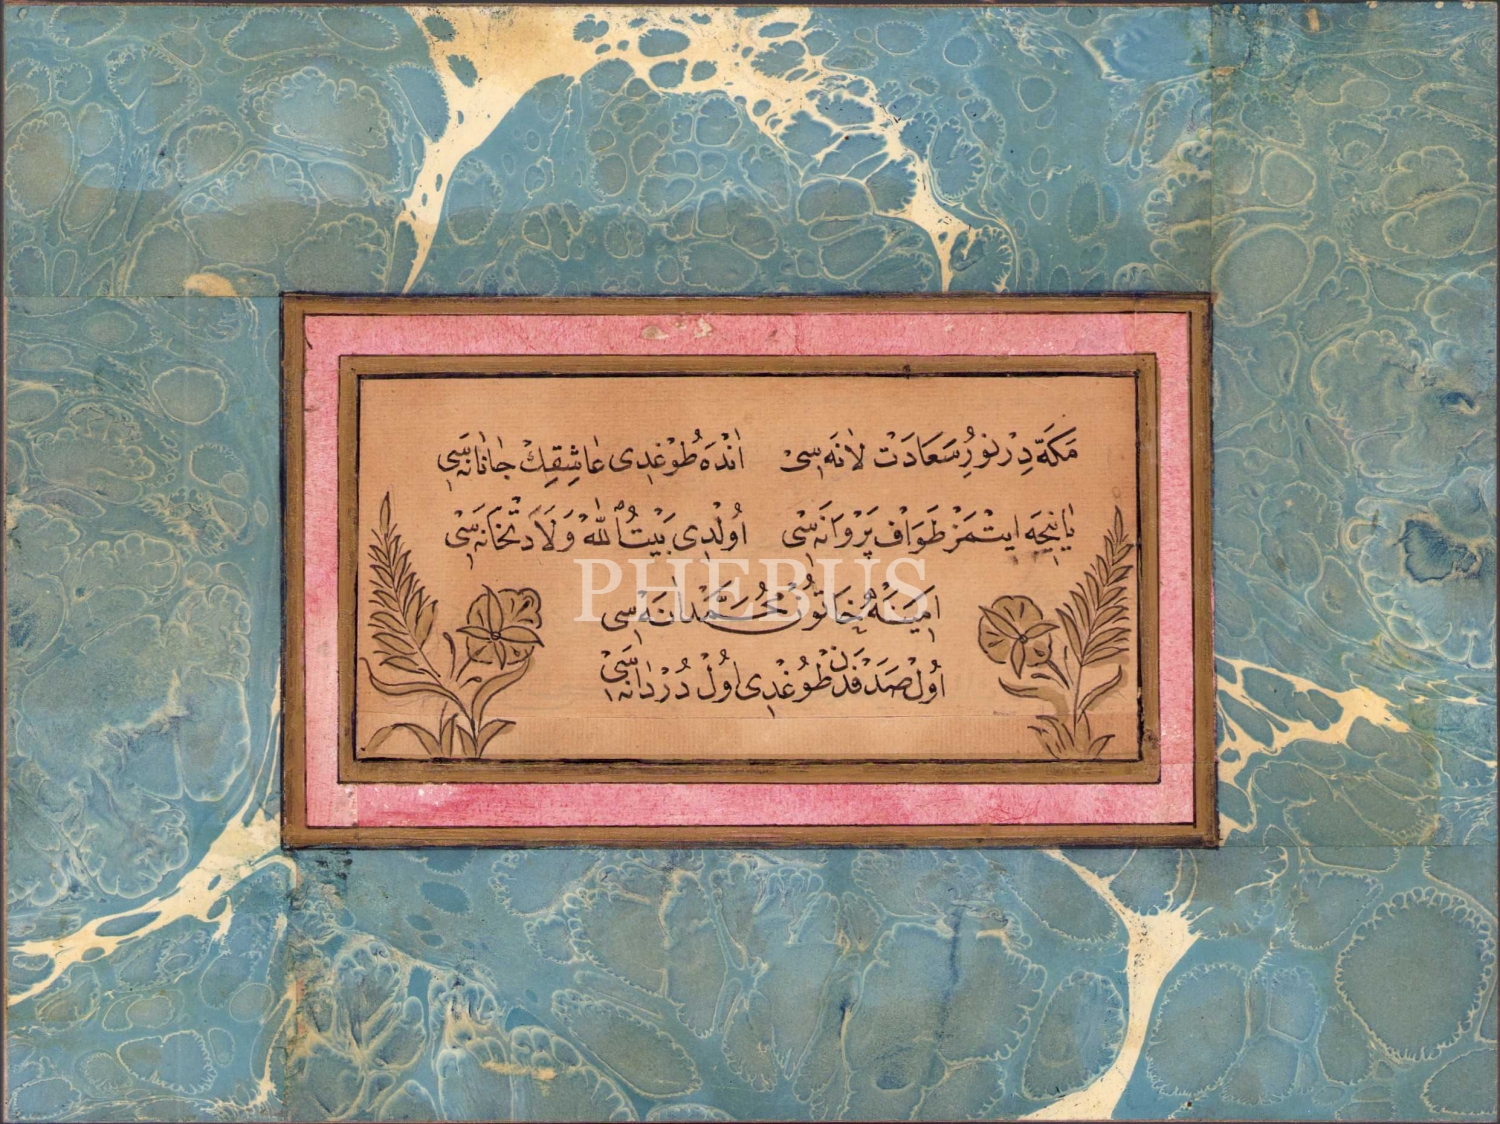 مَكَّه دِرْ نُورِ سَعَادَتْ لَانَه سِیْ   اَنْدَه طُوغْدِی عَاشِقِكْ جَانَانَه سِی
یَا نِیجَه ایتْمَزْ طَوَافْ پَرْوَانَه سِیْ   اُولْدِی بَیْتُ اللّٰه وَلَادَتْخَانَه سِی
اٰمِینَه خَاتُونْ مُحَمَّدْ اٰنَه سِی
PHEBUS
اُولْ صَدَفْدَنْ طُوغْدِی اُولْ دُرْدَانَه سِی